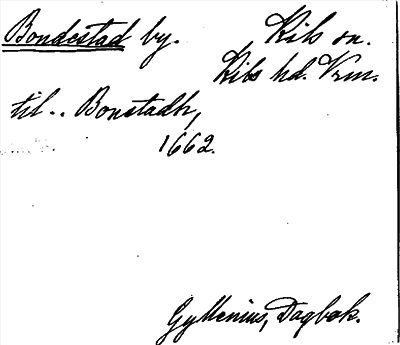 Bondestad by. Kils sn.
Kils hd. Vrm.
til.. Bonstadh,
1662.
Gyllenius, Dagbok.